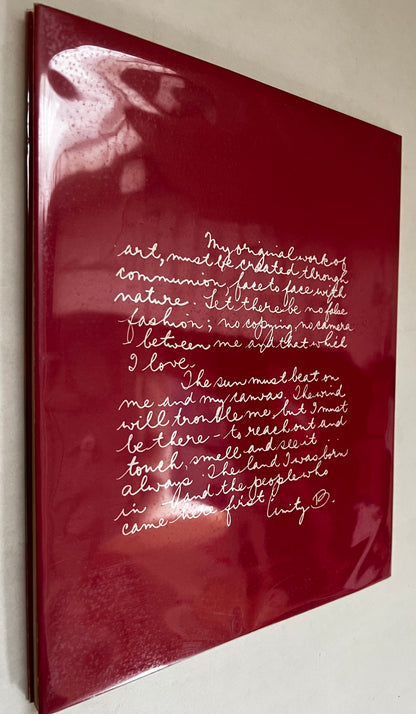 My original work of
art, must be created through
communion face to face with
nature. Let there be no false
fashion; no copying, no camera
between me and that which
I love.
The sun must beat on
me and my canvas. The wind
will trouble me but I must
be there - to reach out and
touch, smell and see it
always. The land I was born
in and the people who
came here first Unity